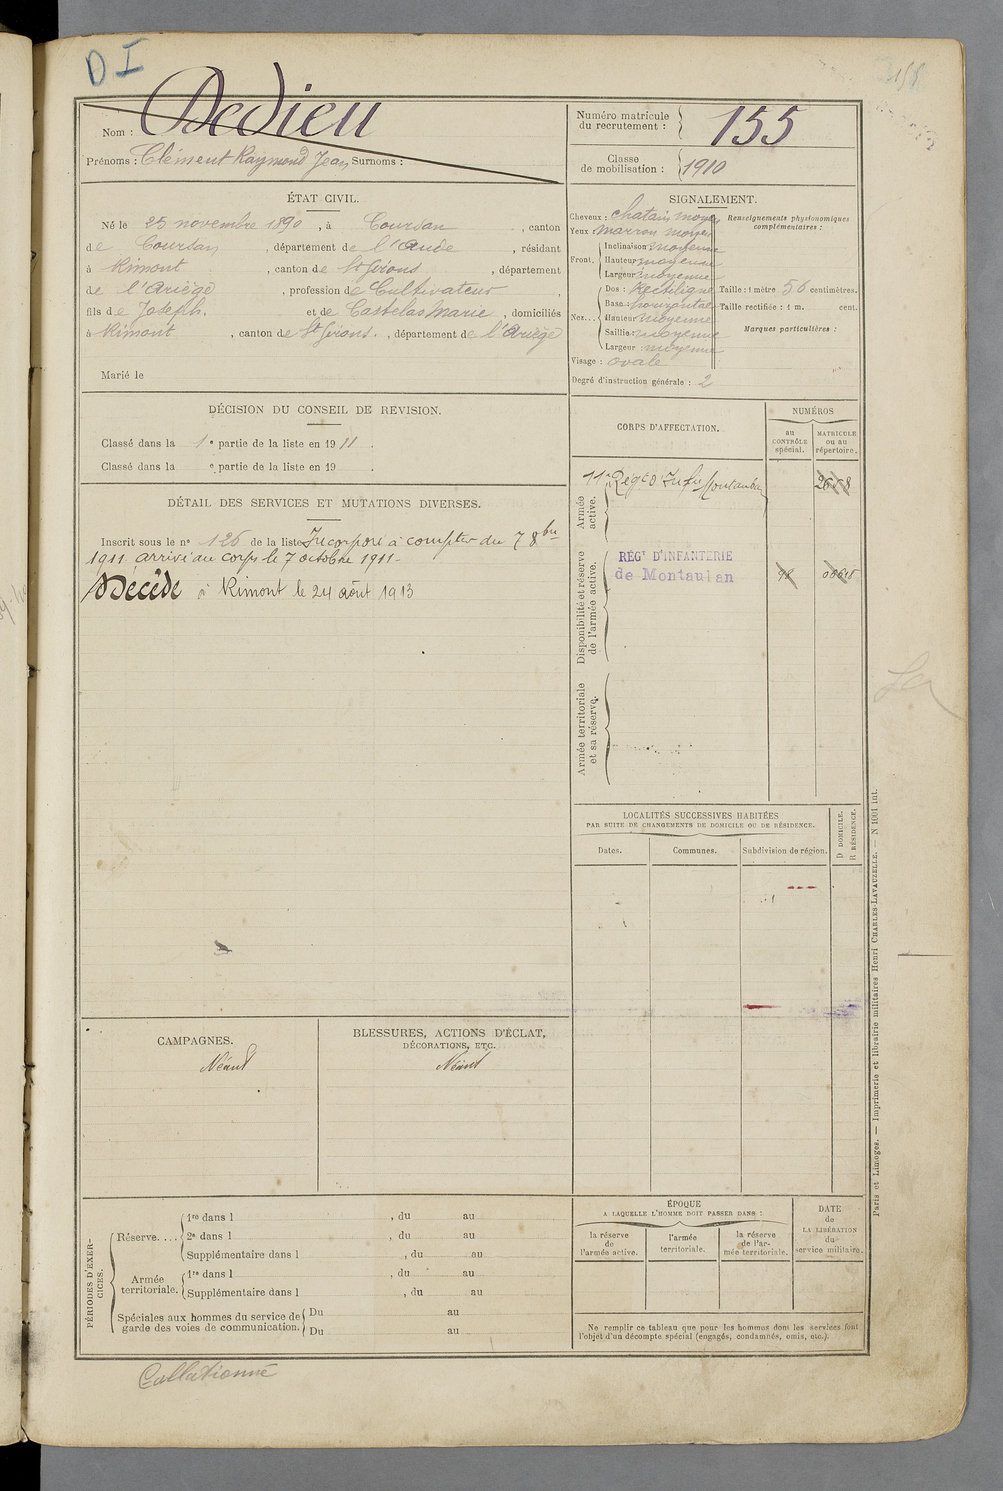 D I
155
Nom : Dedieu
Prénoms : Clément Raymond Jean Surnoms :
Numéro matricule du recrutement : 155
Classe de mobilisation : 1910
ÉTAT CIVIL.
Né le 25 novembre 1890, à Coursan, canton
de Coursan, département de l'Aude, résidant
à Rimont, canton de St Girons, département
de l'Ariège, profession de Cultivateur,
fils de Joseph. et de Castelas Marie, domiciliés
à Rimont, canton de St Girons., département de l'Ariège
Marié le
SIGNALEMENT.
Cheveux : chatain moyen
Yeux marron moyen
Front, Inclinaison : moyenne
Hauteur moyenne
Largeur moyenne
Nez... Dos : Rectiligne
Base : horizontale
Hauteur moyenne
Saillie : moyenne
Largeur : moyenne
Visage : ovale
Renseignements physionomiques complémentaires :
Taille : 1 mètre 56 centimètres.
Taille rectifiée : 1 m. cent.
Marques particulières :
Degré d'instruction générale : 2
DÉCISION DU CONSEIL DE REVISION.
Classé dans la 1e partie de la liste en 1911.
Classé dans la e partie de la liste en 19 .
DÉTAIL DES SERVICES ET MUTATIONS DIVERSES.
Inscrit sous le n° 126 de la liste Incorporé à compter du 7 8bre
1911 arrivé au corps le 7 octobre 1911-
Décédé à Rimont le 24 août 1913
CORPS D'AFFECTATION.
NUMÉROS
au CONTRÔLE spécial.
MATRICULE ou au répertoire.
Armée active.
11e Régt d'Infie Montauban
Disponibilité et réserve de l'armée active.
RÉGT D'INFANTERIE
de Montauban
Armée territoriale et sa réserve.
LOCALITÉS SUCCESSIVES HABITÉES
PAR SUITE DE CHANGEMENTS DE DOMICILE OU DE RÉSIDENCE.
Dates.
Communes.
Subdivision de région.
D DOMICILE.
R RÉSIDENCE.
CAMPAGNES.
Néant
BLESSURES, ACTIONS D'ÉCLAT,
DÉCORATIONS, ETC.
Néant
PÉRIODES D'EXERCICES.
Réserve.... 1re dans l , du au
2e dans l , du au
Supplémentaire dans l , du au
Armée territoriale. 1re dans l , du au
Supplémentaire dans l , du au
Spéciales aux hommes du service de garde des voies de communication. Du au
Du au
ÉPOQUE
A LAQUELLE L'HOMME DOIT PASSER DANS :
la réserve de l'armée active.
l'armée territoriale.
la réserve de l'armée territoriale.
DATE de LA LIBÉRATION du service militaire.
Ne remplir ce tableau que pour les hommes dont les services font
l'objet d'un décompte spécial (engagés, condamnés, omis, etc.).
Paris et Limoges. — Imprimerie et librairie militaires Henri CHARLES-LAVAUZELLE. — N 1001 int.
Collationné